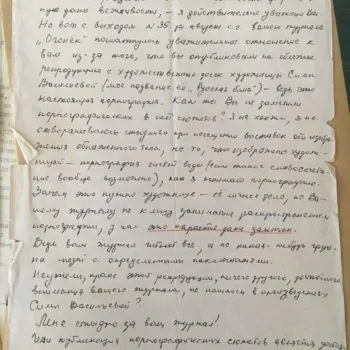 ную дань вежливости, – я действительно уважаю Вас
Но вот с выходом N 35 за август с.г. вашего журнала
„Огонёк" пошатнулось уважительное отношение к
вам из-за того, что вы опубликовали на обложке
репродукцию с художественных досок художницы Симы
Васильевой (мое название её „Русская баня") – ведь это
настоящая порнография. Как же Вы не заметили
порнографических в ней сюжетов? Я не ханжа, я не
отворачиваюсь стыдливо при посещении выставок от изобра-
жения обнаженного тела, но то, что изобразила худож-
ница – порнография чистой воды (если такое словосочета-
ние вообще возможно),
Зачем это нужно художнице – её личное дело, но Ва-
шему журналу не к лицу заниматься распространением
порнографии, у нас это карается даже законом.
Ведь ваш журнал читают все, а не какая-нибудь груп-
па людей с определенными наклонностями.
Неужели, кроме этой репродукции, ничего другого, достойного
внимания вашего журнала, не нашлось в произведениях
Симы Васильевой?
Мне стыдно за ваш журнал!
Или публикация порнографических сюжетов является